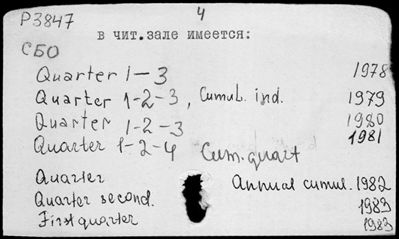 Р3847
4
в чит.зале имеется:
СБО
Quarter 1-3 1978
Quarter 1-2-3, Cumul. ind. 1979
Quarter 1-2-3 1980
Quarter 1-2-4 Cum.quart 1981
Quarter Annual cumul. 1982
Quarter second. 1983
First quarter 1983